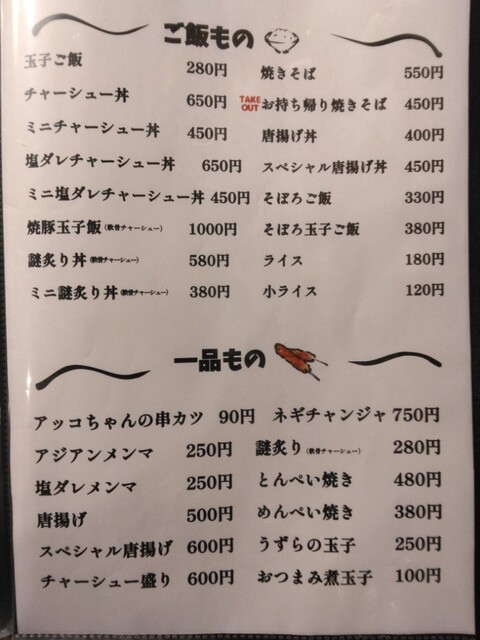 ご飯もの
玉子ご飯 280円
チャーシュー丼 650円
ミニチャーシュー丼 450円
塩ダレチャーシュー丼 650円
ミニ塩ダレチャーシュー丼 450円
焼豚玉子飯(軟骨チャーシュー) 1000円
謎炙り丼(軟骨チャーシュー) 580円
ミニ謎炙り丼(軟骨チャーシュー) 380円
焼きそば 550円
TAKE OUT お持ち帰り焼きそば 450円
唐揚げ丼 400円
スペシャル唐揚げ丼 450円
そぼろご飯 330円
そぼろ玉子ご飯 380円
ライス 180円
小ライス 120円
一品もの
アッコちゃんの串カツ 90円
アジアンメンマ 250円
塩ダレメンマ 250円
唐揚げ 500円
スペシャル唐揚げ 600円
チャーシュー盛り 600円
ネギチャンジャ 750円
謎炙り(軟骨チャーシュー) 280円
とんぺい焼き 480円
めんぺい焼き 380円
うずらの玉子 250円
おつまみ煮玉子 100円